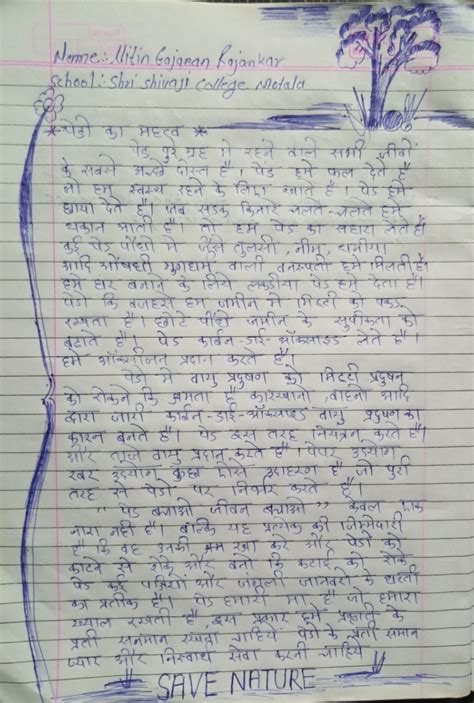 Name:- Nitin Gajanan Rajankar
School:- Shri Shivaji College Motala
* पेडो का महत्व *
पेड पुरे ग्रह मे रहने वाले सभी जीवों
के सबसे अच्छे दोस्त है। पेड हमे फल देते है
जो हम स्वस्थ रहने के लिए खाते है। पेड हमे
छाया देते है। जब सडक किनारे चलते-चलते हमे
थकान आती है। तो हम पेड का सहारा लेते है
कई पेड पौधो मे जैसे तुलसी, नीम,
आदि औषधी गुणधर्म वाली वनस्पती हमे मिलती है।
हमे घर बनाने के लिये लकडीया पेड हमे देता है।
पेडो कि वजहसे हम जमीन मे मिट्टी को पकड
रखता है। छोटे पौधे जमीन के सुपीकता को
बढाते है। पेड कार्बन-डाई-ऑक्साइड लेते है।
हमे ऑक्सीजन प्रदान करते है।
पेडो मे वायु प्रदुषण को मिट्टी प्रदुषन
को रोकने कि क्षमता है कारखानो, वाहनो आदि
द्वारा जारी कार्बन-डाई-ऑक्साइड वायु प्रदुषण का
कारन बनते है। पेड इस तरह नियंत्रन करते है।
और ताजे वायु प्रदान करते है। पेपर उद्योग
रबर उद्योग कुछ ऐसे उदाहरण है जो पुरी
तरह से पेडो पर निर्भर करते है।
" पेड बचाओ जीवन बचाओ " केवल एक
नारा नही है। बल्कि यह प्रत्येक की जिम्मेदारी
है कि वह उनकी रक्षा करे और पेडो को
काटने से रोके और वनो कि कटाई को रोके
पेड कई पक्षियों और जंगली जानवरो के धरती
का प्रतीक है। पेड हमारी मा है जो हमारा
ख्याल रखती है, इस प्रकार हमे प्रकृति के
प्रती सनमान रखना चाहिये पेडो के प्रती समान
प्यार और निस्वार्थ सेवा करनी चाहिये
SAVE NATURE